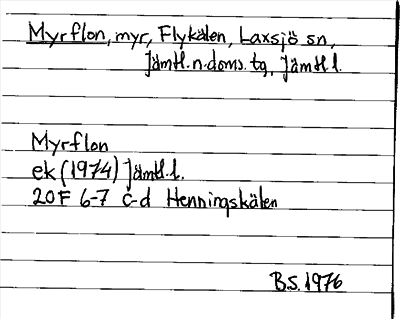 Myrflon, myr, Flykälen, Laxsjö sn,
Jämtl.n.doms.tg, Jämtl.l.
Myrflon
ek (1974) Jämtl.l.
20F 6-7 c-d Henningskälen
B.S. 1976